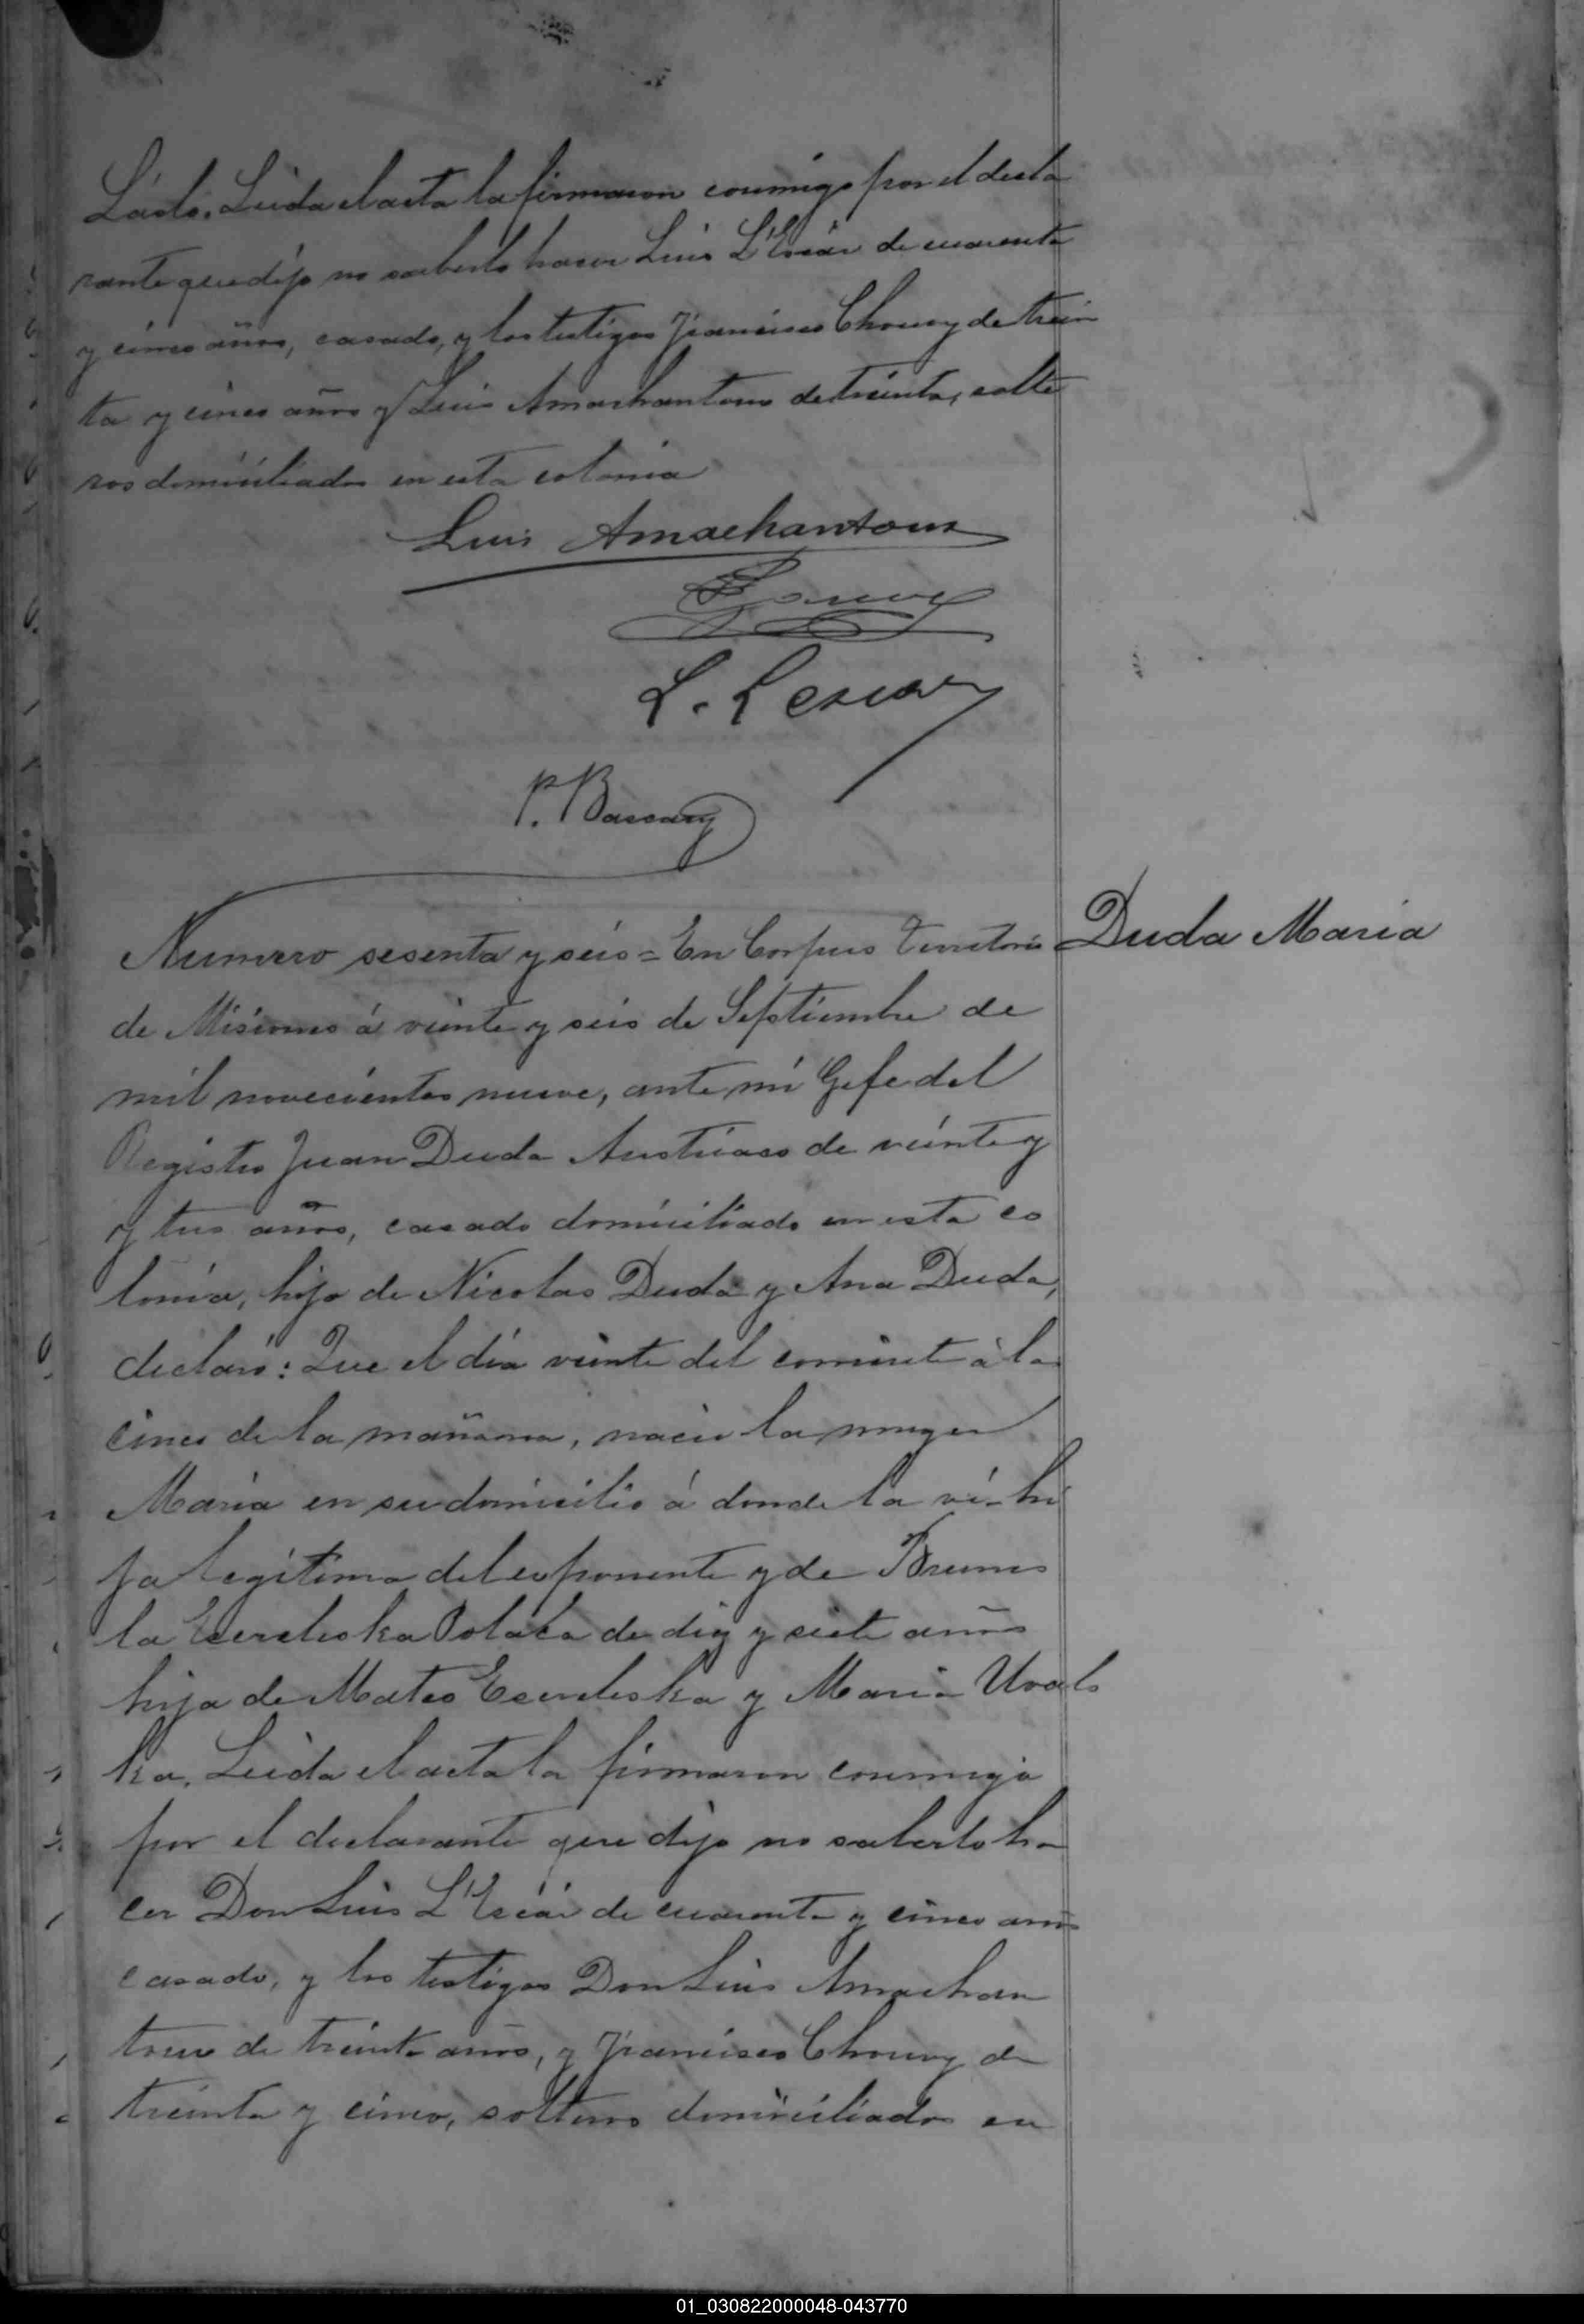 Leida el acta la firmaron conmigo por el decla
rante que dijo no saberlo hacer Luis L'Escár de cuarenta
y cinco años, casado, y los testigos Francisco Chouvy de trein
ta y cinco años y Luis Amachantoux de treinta, solte
ros domiciliados en esta colonia
Luis Amachantoux
L. Lescar
P. Bascary
Numero sesenta y seis = En Corpus Territorio
Duda Maria
de Misiones á veinte y seis de Septiembre de
mil novecientos nueve, ante mi Gefe del
Registro Juan Duda Austriaco de veinte y
y tres años, casado domiciliado en esta co
lonia, hijo de Nicolas Duda y Ana Duda,
declaró: Que el dia veinte del corriente á las
cinco de la mañana, nació la muger
Maria en su domicilio á donde la ví - hi
ja legitima del esponente y de Brunis
la Polaca de diez y siete años
hija de Mateo y Maria
ka, Leida el acta la firmaron conmigo
por el declarante que dijo no saberlo ha
cer Don Luis L'Escár de cuarenta y cinco años
casado, y los testigos Don Luis Amachan
toux de treinta años, y Francisco Chouvy de
treinta y cinco, solteros domiciliados en
01_030822000048-043770